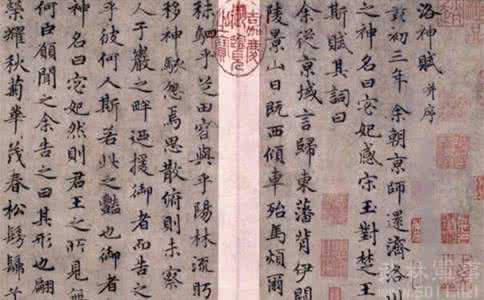 洛神賦 并序
黃初三年余朝京師還濟洛川
之神名曰宓妃感宋玉對楚王
斯賦其詞曰
余從京域言歸東藩背伊闕
陵景山日既西傾車殆馬煩爾
秣駟乎芝田容與乎陽林流眄
移神駭忽焉思散俯則未察
人于巖之畔迺援御者而告之
乎彼何人斯若此之豔也御者
神名曰宓妃然則君王之所見無
何臣願聞之余告之曰其形也翩
榮耀秋菊華茂春松髣髴兮
嘉慶御覽之寶